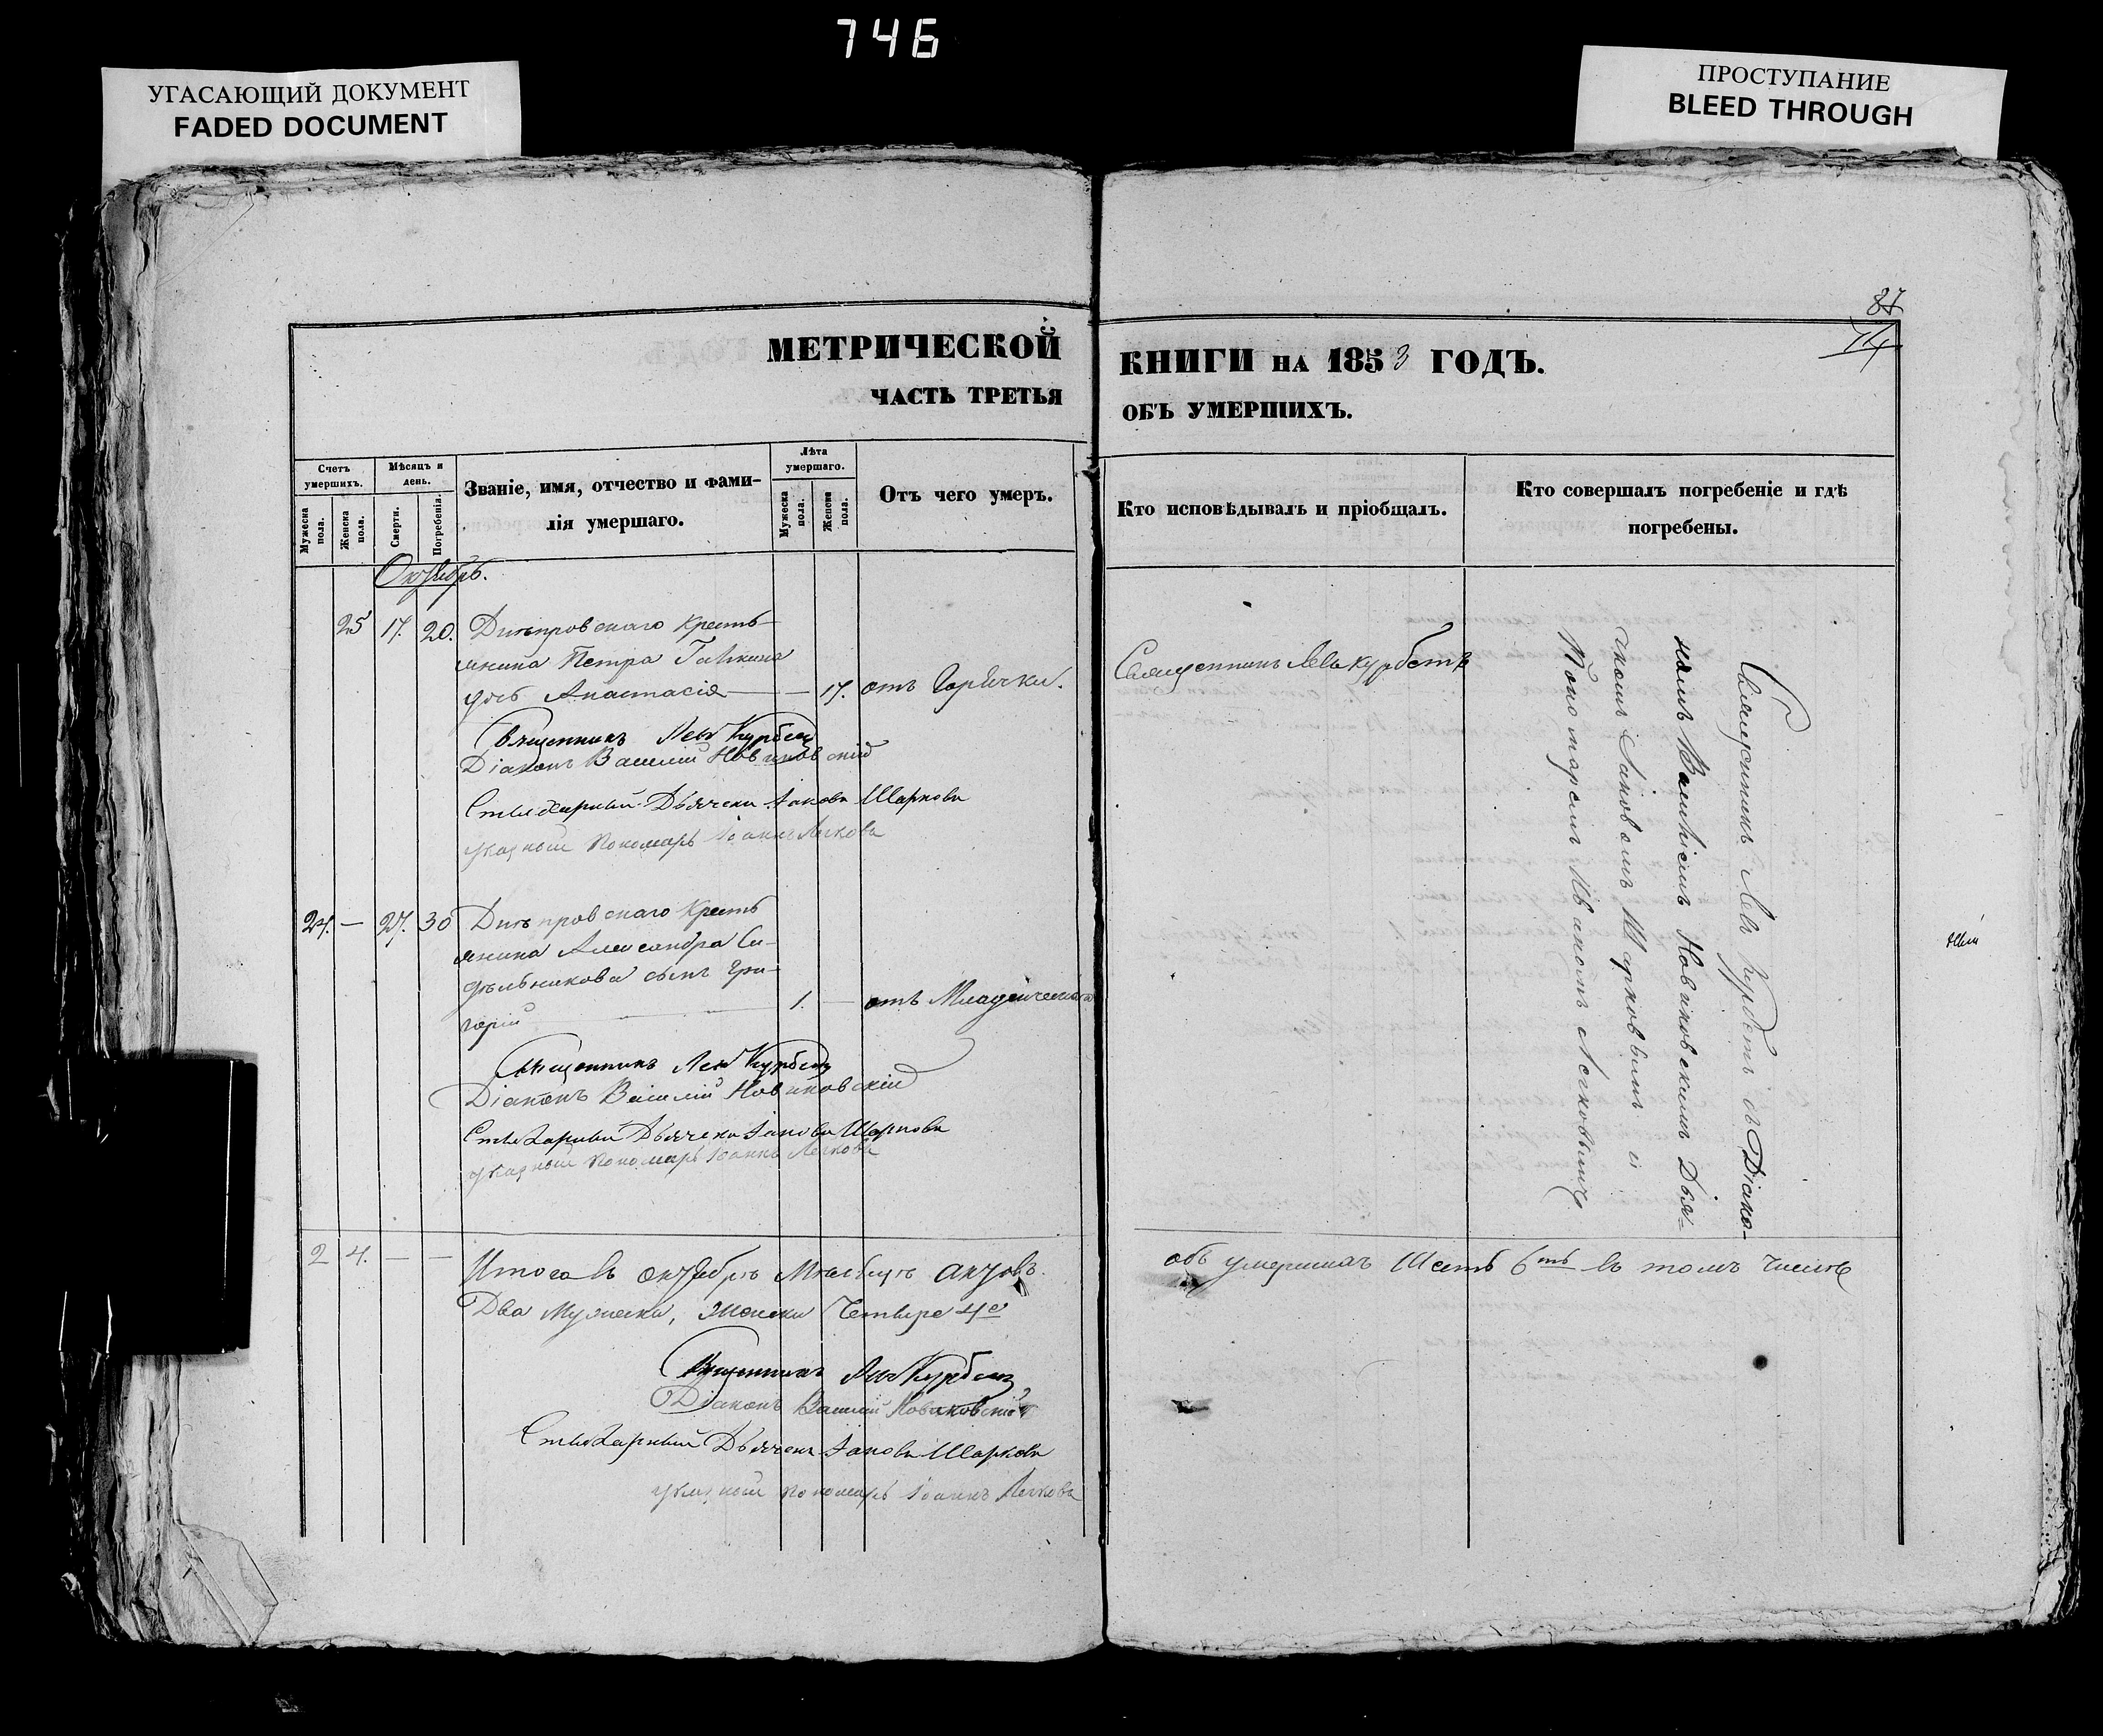 746
УГАСАЮЩИЙ ДОКУМЕНТ
FADED DOCUMENT
ПРОСТУПАНИЕ
BLEED THROUGH
87
74
МЕТРИЧЕСКОЙ КНИГИ НА 1853 ГОДЪ.
ЧАСТЬ ТРЕТЬЯ ОБЪ УМЕРШИХЪ.
Счетъ умершихъ.
Мужеска пола.
Женска пола.
Мѣсяцъ и день.
Смерти.
Погребенія.
Званіе, имя, отчество и фами-
лія умершаго.
Лѣта умершаго.
Мужеска пола.
Женска пола.
Отъ чего умеръ.
Кто исповѣдывалъ и пріобщалъ.
Кто совершалъ погребеніе и гдѣ
погребены.
Октябрь.
25 17. 20. Днѣпровскаго Кресть-
янина Петра Галкина
дочь Анастасія — — 17. отъ Горячки.
Священникъ Левъ Курбетъ
Священникъ Левъ Курбетъ
Діаконъ Василій Новиковскій
Стихарный Дьячекъ Іаковъ Шарковъ
указный Пономарь Іоаннъ Легковъ
24. — 27. 30 Днѣпровскаго Кресть
янина Александра Си-
дѣльникова сынъ Гри-
горій 1. — отъ Младенческаго
Священникъ Левъ Курбетъ
Діаконъ Василій Новиковскій
Стихарный Дьячекъ Іаковъ Шарковъ
указный пономарь Іоаннъ Легковъ
Священникъ Левъ Курбетъ съ Діако-
номъ Василіемъ Новиковскимъ Дья-
чкомъ Іаковомъ Шарковымъ и
Пономаремъ Иваномъ Легковымъ
2 4. — — Итого въ октябрѣ Мѣсяцѣ актовъ объ умершихъ Шесть 6ть въ томъ числѣ
Два Мужска, Женска Четыре 4е
Священникъ Левъ Курбетъ
Діаконъ Василій Новиковскій
Стихарный Дьячекъ Іаковъ Шарковъ
указный пономарь Іоаннъ Легковъ